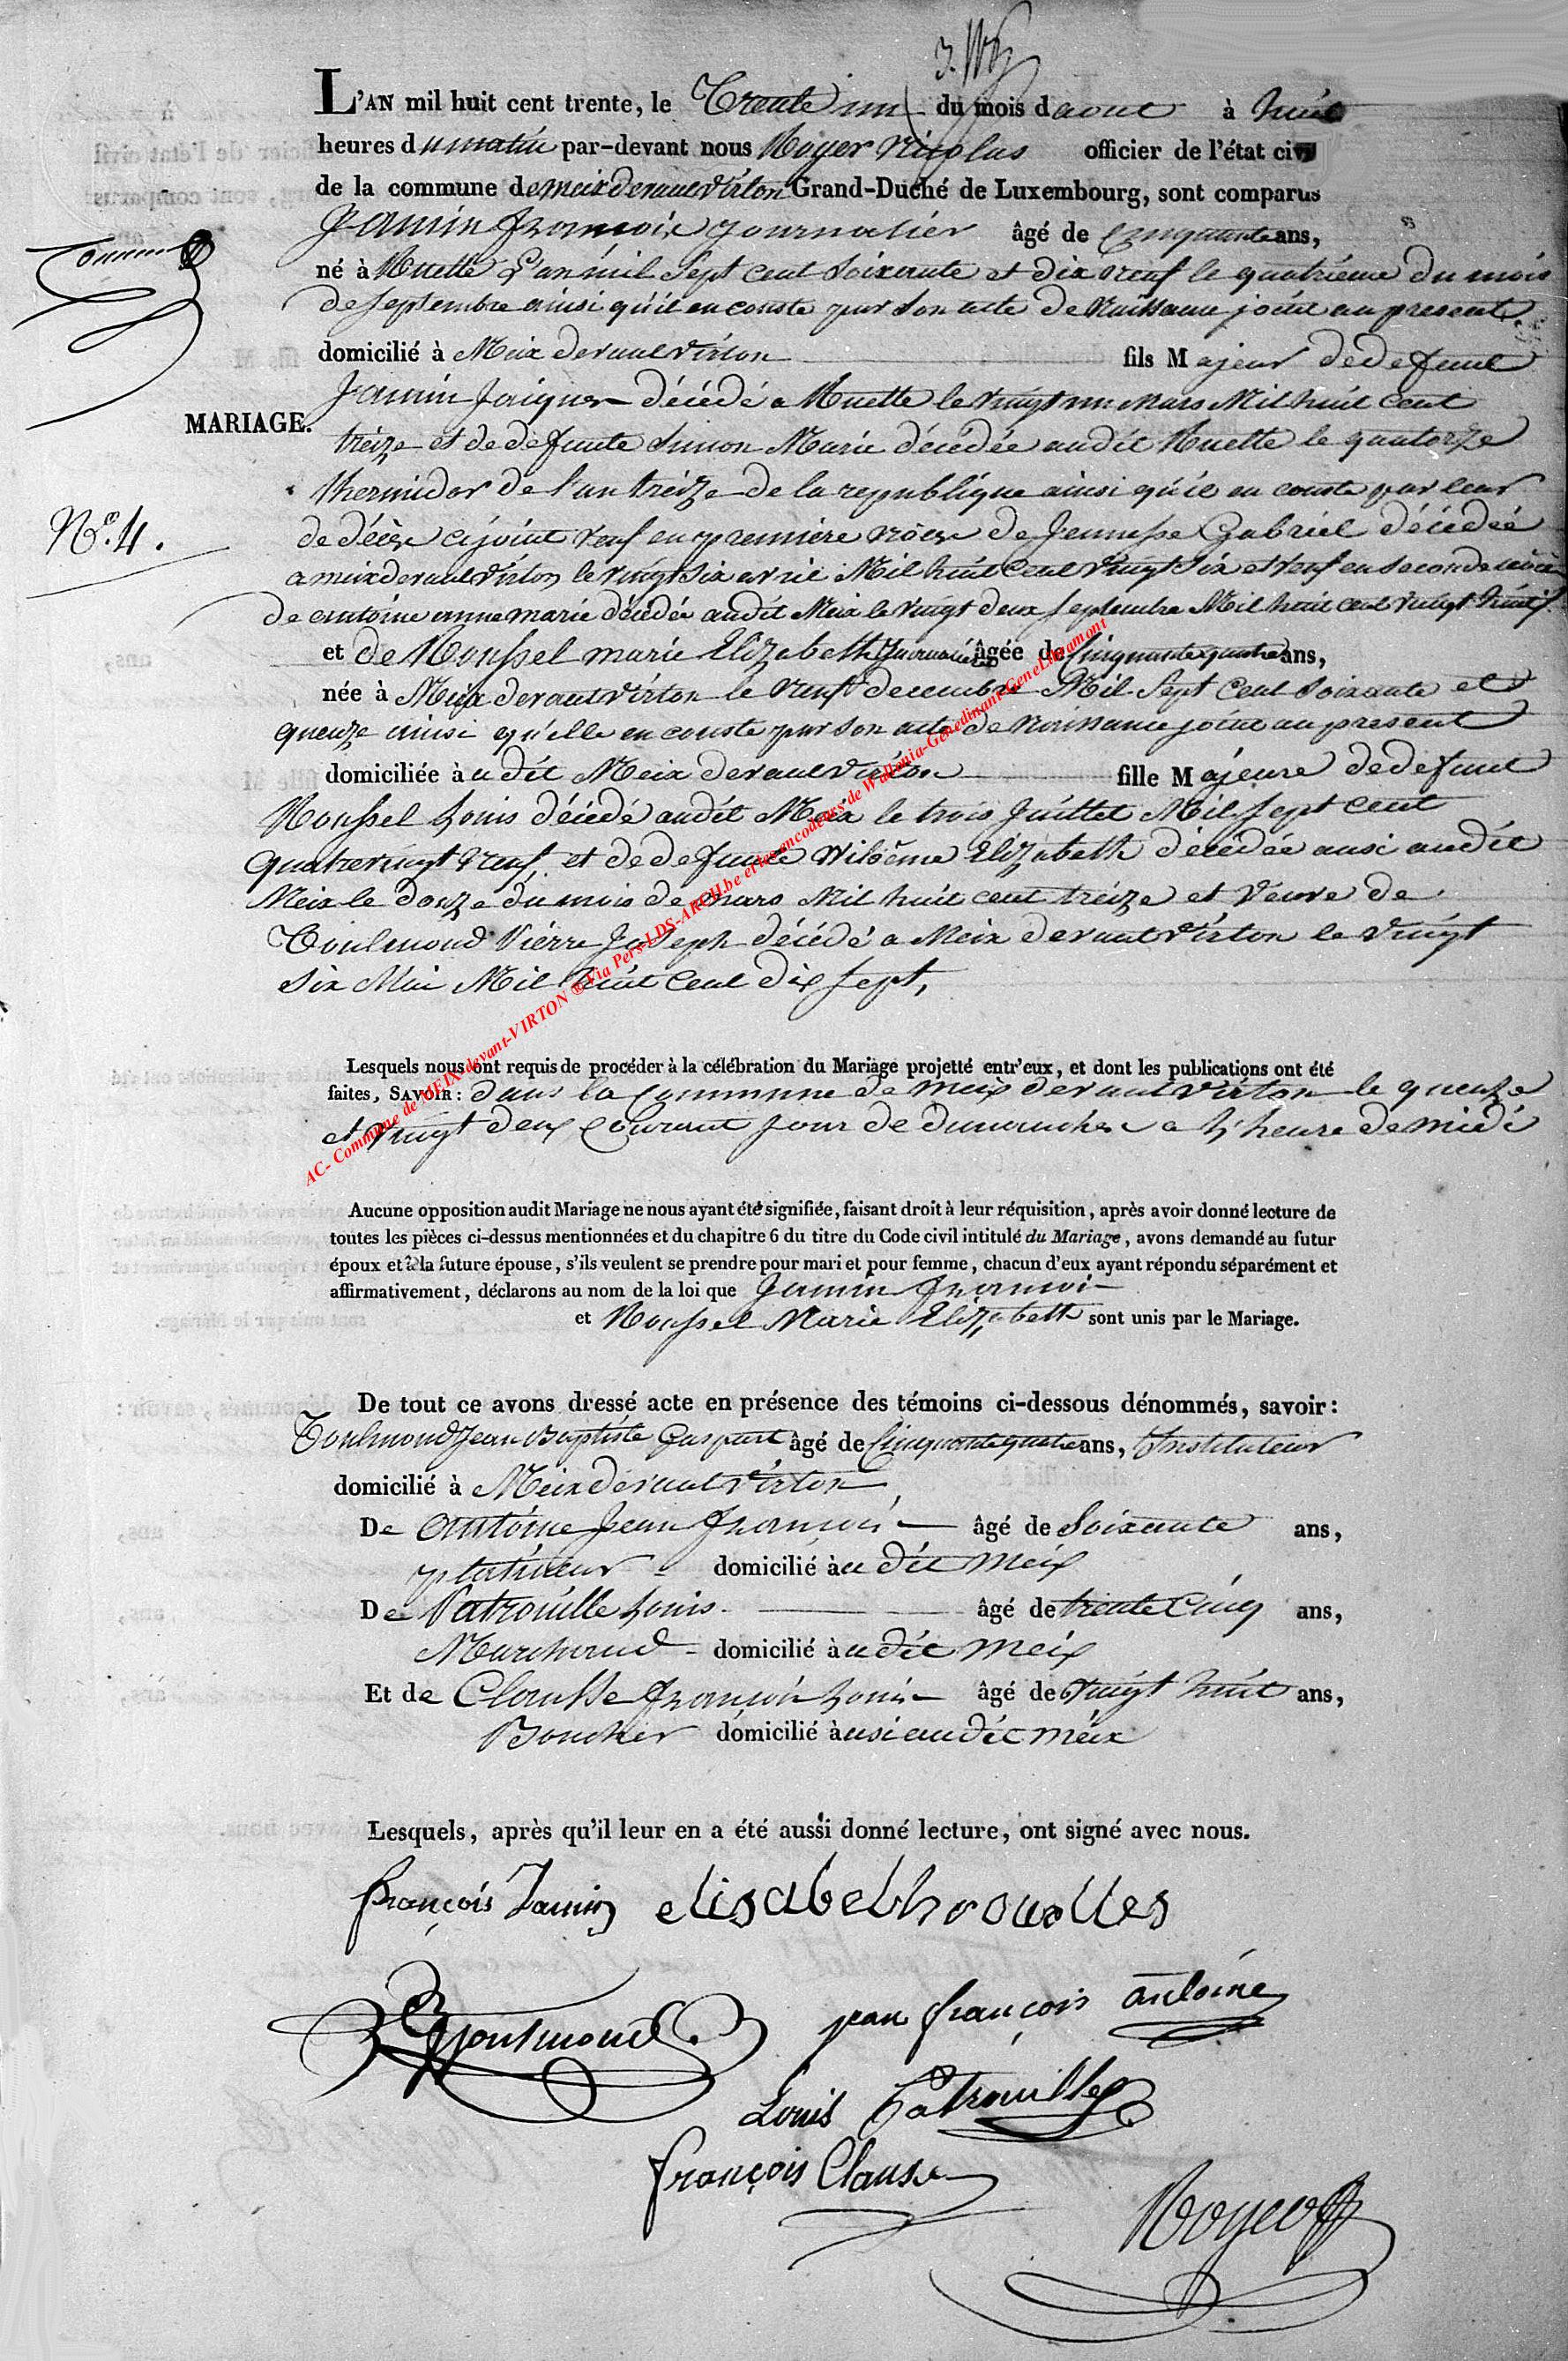 L'AN mil huit cent trente, le Trente un du mois d'aout à huit
heures du matin par-devant nous Royer Nicolas officier de l'état civil
de la commune de meix devant virton Grand-Duché de Luxembourg, sont comparus
Jamin françois Journalier âgé de Cinquante ans,
né à Ruette L'an mil Sept cent Soixante et dix neuf le quatrieme du mois
de Septembre ainsi qu'il en conste par son acte de Naissance joint au present
domicilié à Meix devant virton fils Majeur de defunt
Jamin décédé a Ruette le vingt un mars Mil huit cent
MARIAGE.
treize et de defunte Simon Marie décédée audit Ruette le quatorze
thermidor de l'an treize de la republique ainsi qu'il en conste par leur
N° 4.
de décès cijoint veuf en premiere noce de Jeunesse Gabriel décédée
a meix devant virton le vingt six avril Mil huit cent vingt six et veuf en seconde noce
de antoine anne marie décédée audit Meix le vingt deux septembre Mil huit cent vingt huit
et de Roussel marie Elizabeth Journaliere âgée de Cinquante quatre ans,
née à Meix devant virton le neuf decembre Mil Sept Cent Soixante et
queuze ainsi qu'elle en conste par son acte de Naissance joint au present
domiciliée à audit Meix devant virton fille Majeure de defunt
Roussel Louis décédé audit Meix le trois Juillet Mil Sept cent
quatrevingt neuf, et de defunte Elizabeth décédée ausi audit
Meix le douze du mois de mars Mil huit cent treize et veuve de
Toulmond Pierre Joseph décédé a Meix devant virton le vingt
Six Mai Mil huit Cent dix sept,
AC- Commune de MEIX devant-VIRTON ® Via Pers-LDS-ARCH.be et les encodeurs de Wallonia-Genedinant-GeneLibramont
Lesquels nous ont requis de procéder à la célébration du Mariage projetté entr'eux, et dont les publications ont été
faites, SAVOIR: dans la Commune de meix devant virton le queuze
et vingt deux Courant jour de dimanche a L'heure de midi
Aucune opposition audit Mariage ne nous ayant été signifiée, faisant droit à leur réquisition, après avoir donné lecture de
toutes les pièces ci-dessus mentionnées et du chapitre 6 du titre du Code civil intitulé du Mariage, avons demandé au futur
époux et à la future épouse, s'ils veulent se prendre pour mari et pour femme, chacun d'eux ayant répondu séparément et
affirmativement, déclarons au nom de la loi que Jamin françois
et Roussel Marie Elizabeth sont unis par le Mariage.
De tout ce avons dressé acte en présence des témoins ci-dessous dénommés, savoir:
Toulmond Jean Baptiste Gaspart âgé de Cinquante quatre ans, Instituteur
domicilié à Meix devant virton
De antoine Jean françois âgé de Soixante ans,
platineur domicilié à audit Meix
De Patrouille Louis âgé de trente Cinq ans,
Marchand domicilié à audit Meix
Et de Clausse françois Louis âgé de vingt huit ans,
Boucher domicilié à ausi audit meix
Lesquels, après qu'il leur en a été aussi donné lecture, ont signé avec nous.
françois Jamin elisabeth
Toulmond jean françois antoine
Louis Patrouille
françois Clausse
Royer